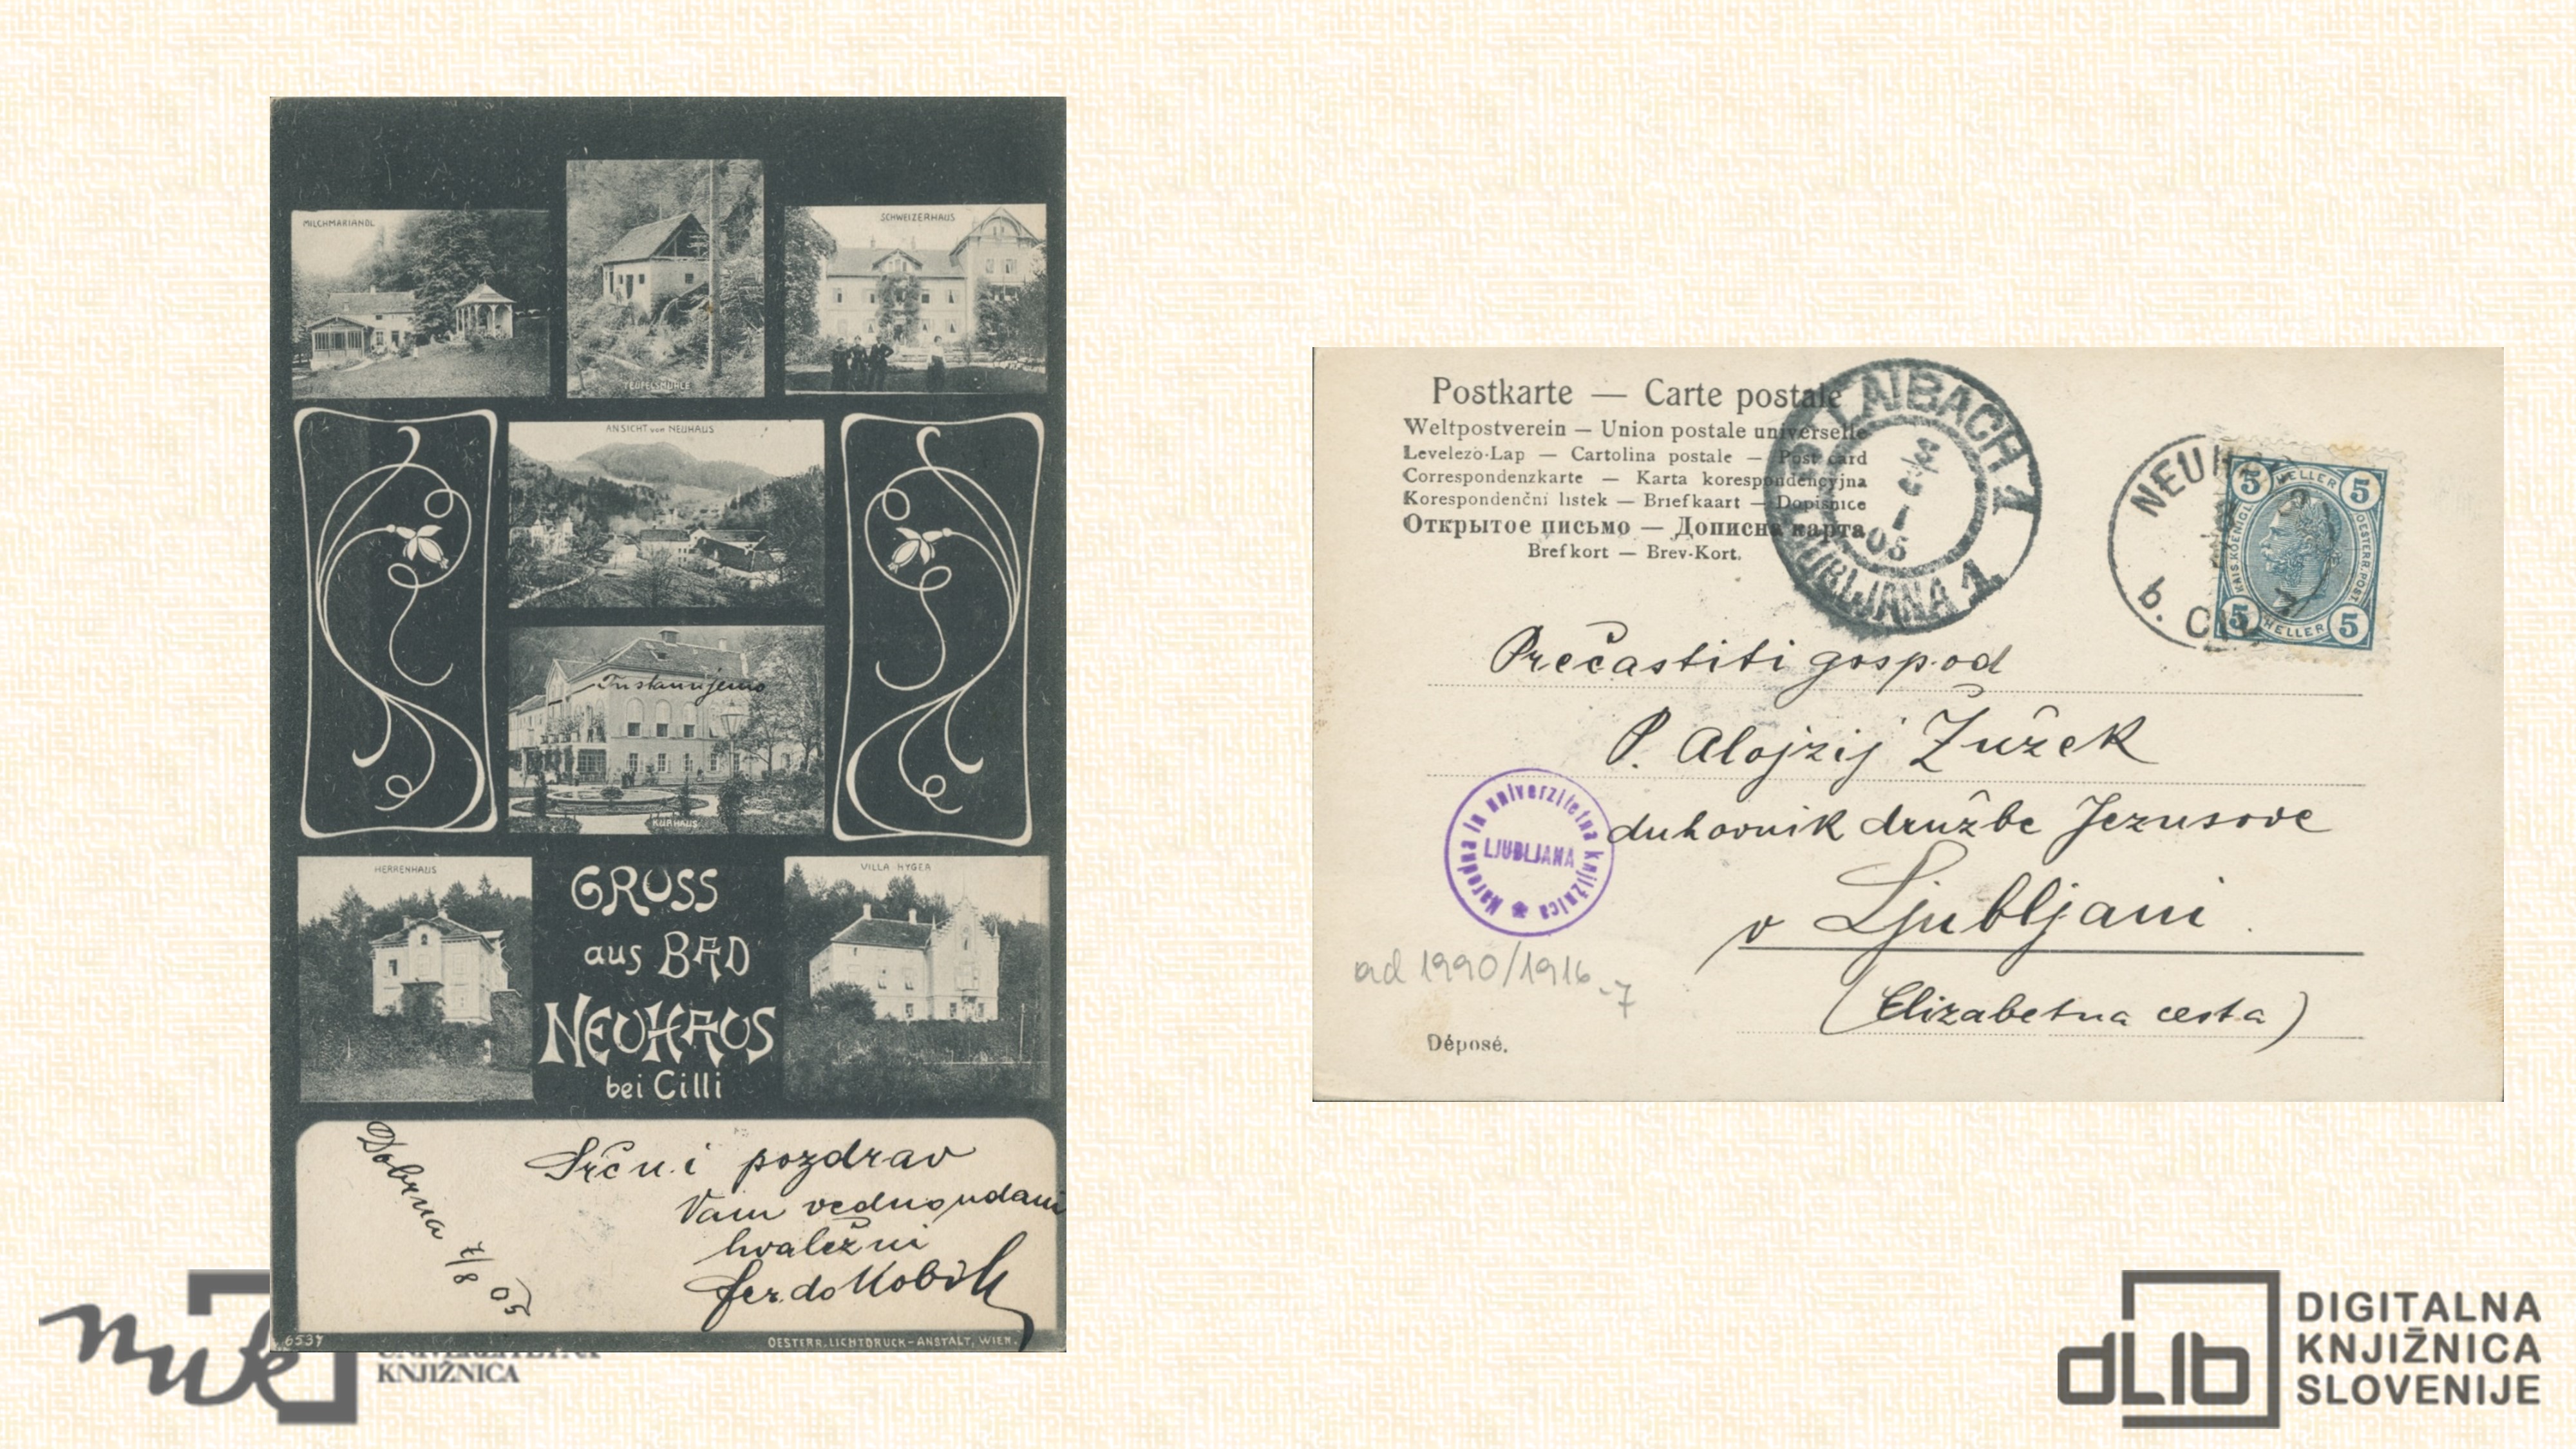 MILCHMARIANDL
TEUFELSMÜHLE
SCHWEIZERHAUS
ANSICHT von NEUHAUS
Tu stanujemo
KURHAUS
HERRENHAUS
VILLA HYGEA
GRUSS
aus BAD
NEUHAUS
bei Cilli
Dobrna 7/8 05
Srčni pozdrav
Vam vedno udani
hvaležni
Ferdo
6537
OESTERR. LICHTDRUCK-ANSTALT, WIEN.
KNJIŽNICA
Postkarte — Carte postale
Weltpostverein — Union postale universelle
Levelezö-Lap — Cartolina postale — Post card
Correspondenzkarte — Karta korespondencyjna
Korespondenční listek — Briefkaart — Dopisnice
Открытое письмо — Дописна карта
Brefkort — Brev-Kort.
LAIBACH 1
05
LJUBLJANA 1
NEUH
b. C
5 HELLER 5
KAIS. KOENIGL. OESTERR. POST
5 HELLER 5
Prečastiti gospod
P. Alojzij Žužek
duhovnik družbe Jezusove
v Ljubljani.
(Elizabetna cesta)
Narodna in univerzitetna knjižnica
LJUBLJANA
ad 1990/1916-7
Déposé.
nuk
dLib
DIGITALNA
KNJIŽNICA
SLOVENIJE